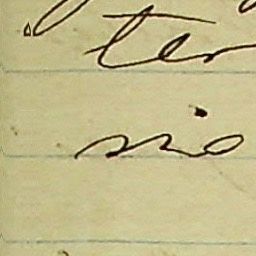 ter
sio